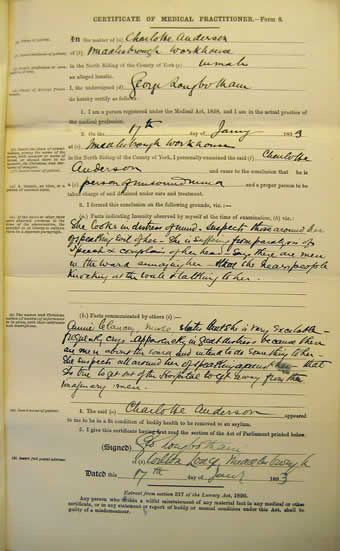 CERTIFICATE OF MEDICAL PRACTITIONER.—Form 8.
In the matter of (a) Charlotte Anderson
of (b) Middlesbrough Workhouse
in the North Riding of the County of York (c) Inmate
an alleged lunatic.
I, the undersigned (d) George Longbotham
do hereby certify as follows:
1. I am a person registered under the Medical Act, 1858, and I am in the actual practice of
the medical profession.
2. On the 17th day of Jany 1893
at (e) Middlesbrough Workhouse
in the North Riding of the County of York, I personally examined the said (f) Charlotte
Anderson and came to the conclusion that he is
a person of unsound mind and a proper person to be
taken charge of and detained under care and treatment.
3. I formed this conclusion on the following grounds, viz.:—
(a.) Facts indicating Insanity observed by myself at the time of examination, (h) viz.:
She looks in distress of mind. Suspects those around her
of speaking evil of her – She is suffering from paralysis of
Speech & complains of her head – Says there are men
in the ward annoying her – that she hears people
knocking at the wall & talking to her.
(b.) Facts communicated by others (i) :—
Annie Clancy Nurse states that she is very excitable –
frequently cries. Apparently in great distress because there
are men about the ward and intend to do something to her.
She suspects all around her of speaking against her – that
tries to get out of the Hospital to get away from the
imaginary men.
4. The said (a) Charlotte Anderson appeared
to me to be in a fit condition of bodily health to be removed to an asylum.
5. I give this certificate having first read the section of the Act of Parliament printed below.
(Signed) Geo Longbotham
of (k)
Dated this 17th day of Jany 1893
Extract from section 317 of the Lunacy Act, 1890.
Any person who makes a wilful misstatement of any material fact in any medical or other
certificate, or in any statement or report of bodily or mental condition under this Act, shall be
guilty of a misdemeanour.